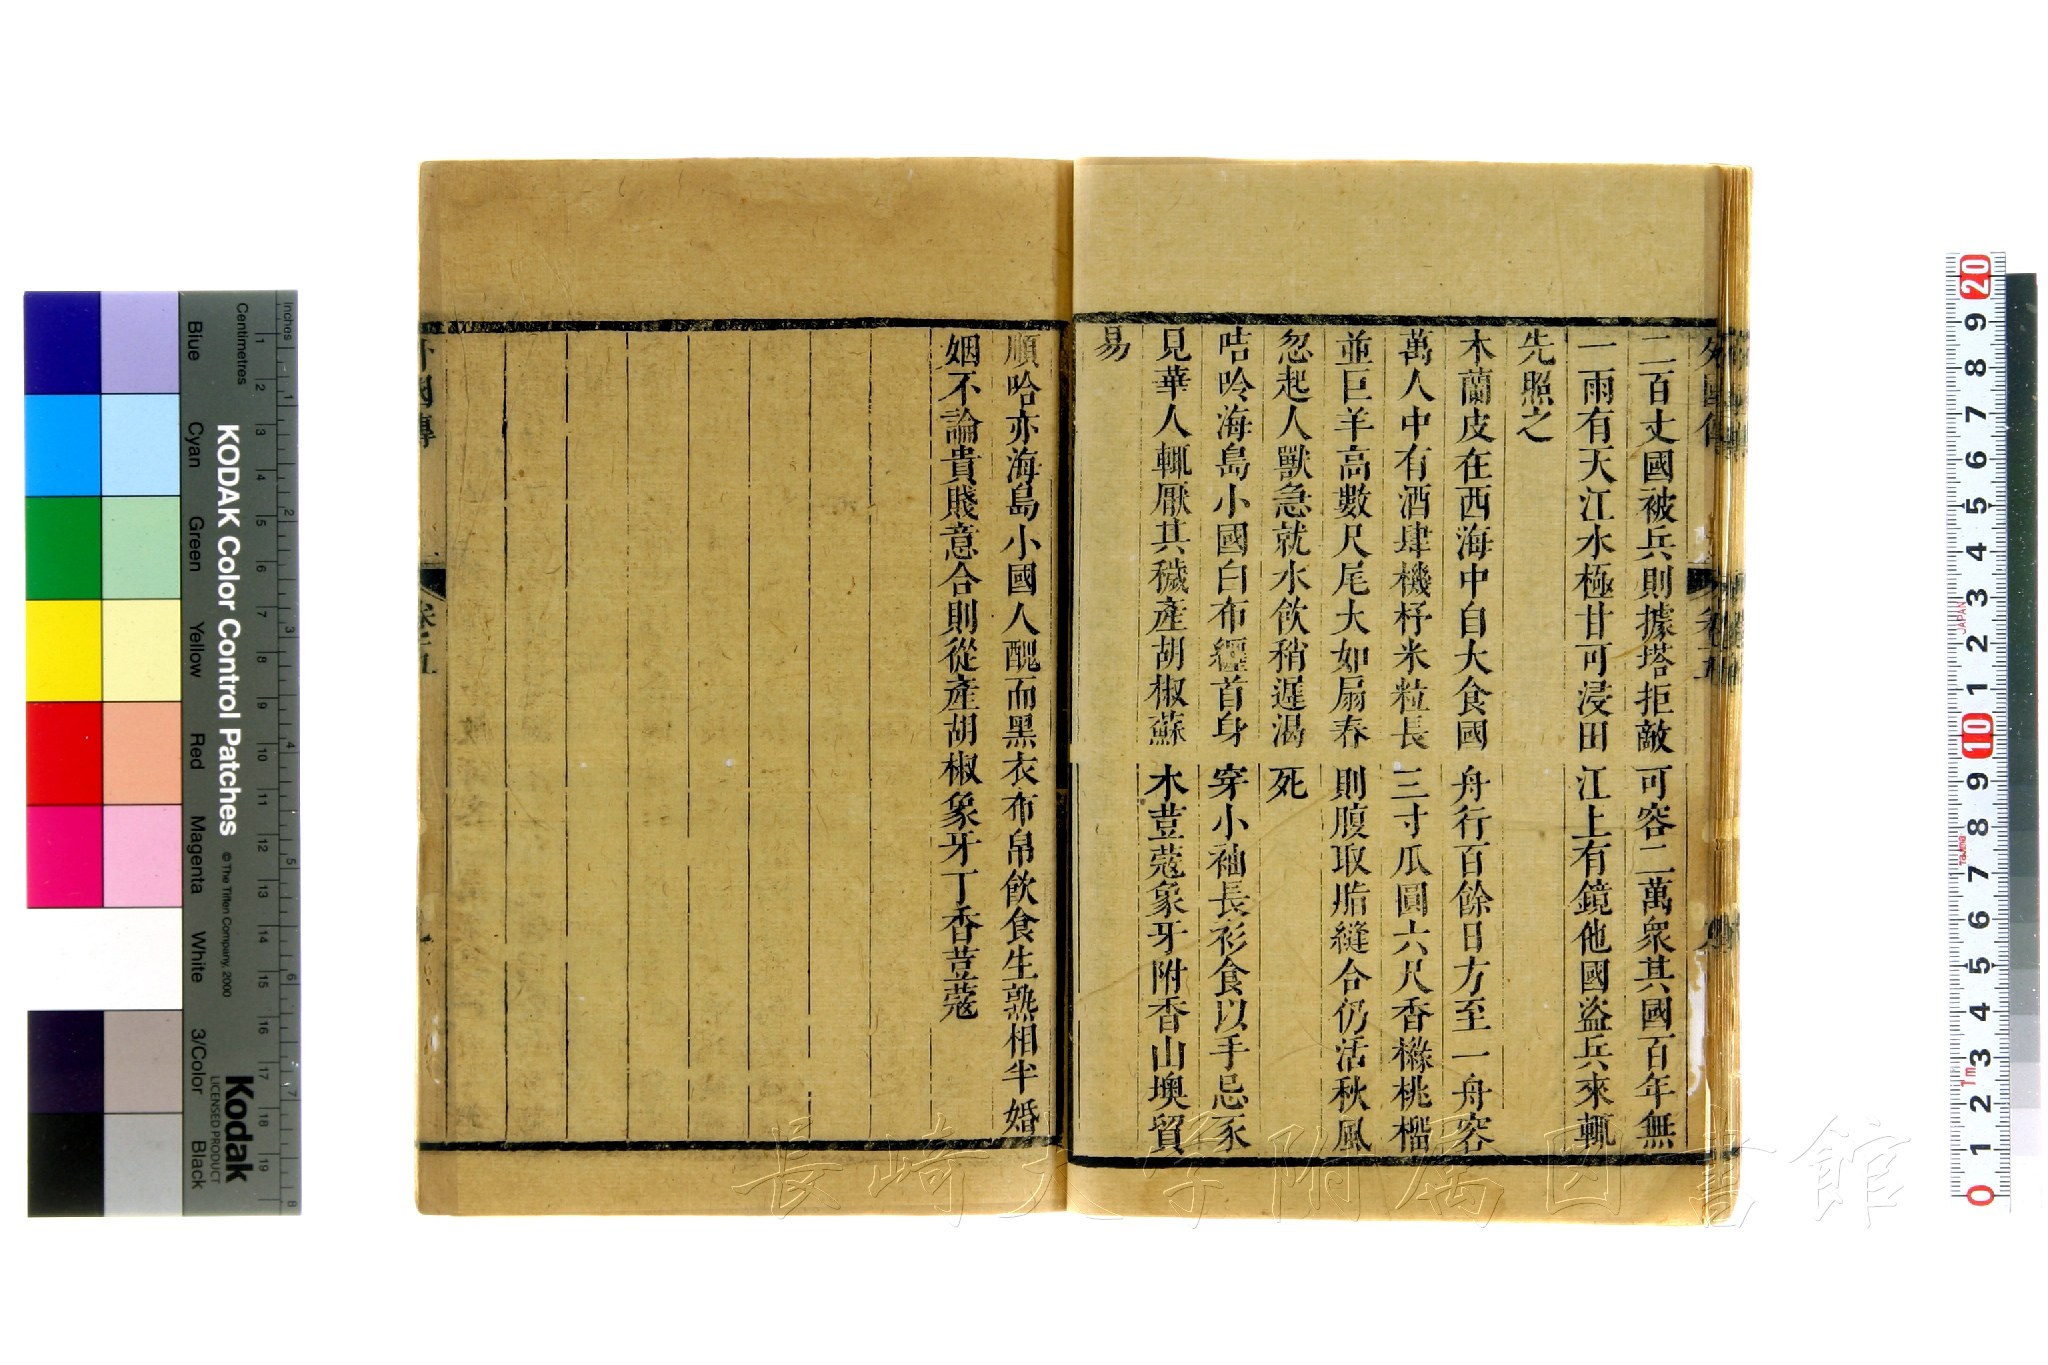 二百丈國被兵則據塔拒敵可容二萬衆其國百年無
一雨有天江水極甘可浸田江上有鏡他國盗兵來輒
先照之
木蘭皮在西海中自大食國舟行百餘日方至一舟容
萬人中有酒肆機杼米粒長三寸瓜圓六尺香櫞桃榴
並巨羊高數尺尾大如扇春則腹取脂縫合仍活秋風
忽起人獸急就水飲稍遲渴死
咭呤海島小國白布纏首身穿小袖長衫食以手忌豕
見華人輒厭其穢產胡椒蘇木荳蔻象牙附香山墺貿
易
順哈亦海島小國人醜而黑衣布帛飲食生熟相半婚
姻不論貴賤意合則從產胡椒象牙丁香荳蔻
外國傳
卷之五
KODAK Color Control Patches
© The Tiffen Company, 2000
Kodak
LICENSED PRODUCT
Inches
Centimetres
Blue
Cyan
Green
Yellow
Red
Magenta
White
3/Color
Black
JAPAN
1m
長崎大学附属図書館